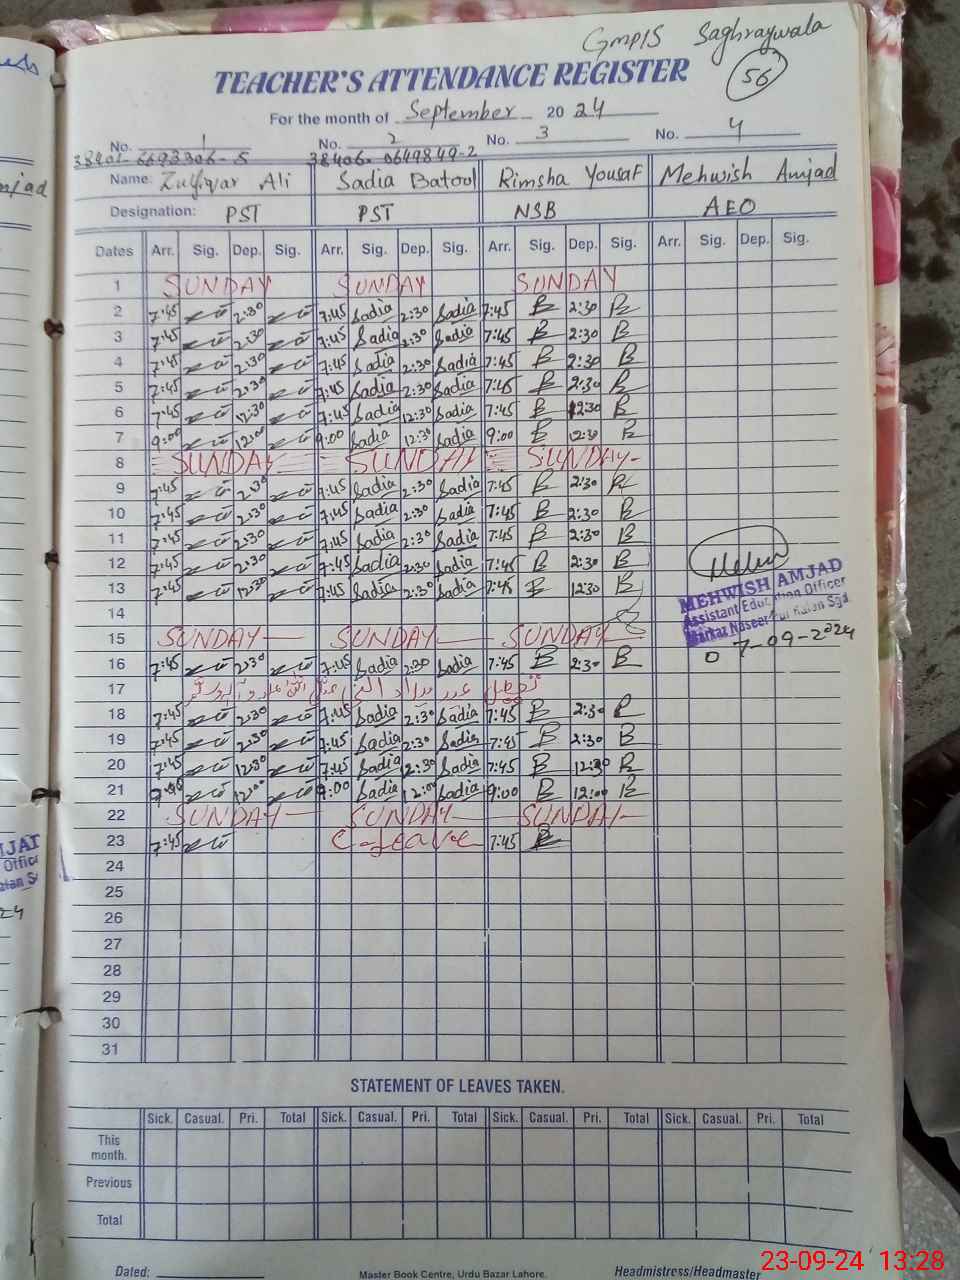 GMPIS Saghraywala
56
TEACHER'S ATTENDANCE REGISTER
For the month of September 20 24
No. 1 No. 2 No. 3 No. 4
38401-6693306-5 38406-0649849-2
Name: Zulfiqar Ali Sadia Batool Rimsha Yousaf Mehwish Amjad
Designation: PST PST NSB AEO
Dates Arr. Sig. Dep. Sig. Arr. Sig. Dep. Sig. Arr. Sig. Dep. Sig. Arr. Sig. Dep. Sig.
1 SUNDAY SUNDAY SUNDAY
2 7:45 2:30 7:45 Sadia 2:30 Sadia 7:45 2:30
3 7:45 2:30 7:45 Sadia 2:30 Sadia 7:45 2:30
4 7:45 2:30 7:45 Sadia 2:30 Sadia 7:45 2:30
5 7:45 2:30 7:45 Sadia 2:30 Sadia 7:45 2:30
6 7:45 12:30 7:45 Sadia 12:30 Sadia 7:45 12:30
7 9:00 12:00 9:00 Sadia 12:30 Sadia 9:00 12:30
8 SUNDAY SUNDAY SUNDAY
9 7:45 2:30 7:45 Sadia 2:30 Sadia 7:45 2:30
10 7:45 2:30 7:45 Sadia 2:30 Sadia 7:45 2:30
11 7:45 2:30 7:45 Sadia 2:30 Sadia 7:45 2:30
12 7:45 2:30 7:45 Sadia 2:30 Sadia 7:45 2:30
13 7:45 12:30 7:45 Sadia 2:30 Sadia 7:45 12:30
MEHWISH AMJAD
Assistant Education Officer
Markaz Naseer Pur Kalan Sgd
07-09-2024
14
15 SUNDAY SUNDAY SUNDAY
16 7:45 2:30 7:45 Sadia 2:30 Sadia 7:45 2:30
17 تعطیل عید میلاد النبی
18 7:45 2:30 7:45 Sadia 2:30 Sadia 7:45 2:30
19 7:45 2:30 7:45 Sadia 2:30 Sadia 7:45 2:30
20 7:45 12:30 7:45 Sadia 12:30 Sadia 7:45 12:30
21 12:00 9:00 Sadia 12:00 Sadia 9:00 12:00
22 SUNDAY SUNDAY SUNDAY
23 7:45 C-Leave 7:45
24
25
26
27
28
29
30
31
STATEMENT OF LEAVES TAKEN.
Sick. Casual. Pri. Total Sick. Casual. Pri. Total Sick. Casual. Pri. Total Sick. Casual. Pri. Total
This month.
Previous
Total
Dated: Master Book Centre, Urdu Bazar Lahore. Headmistress/Headmaster
23-09-24 13:28